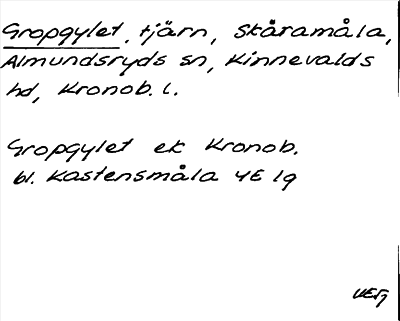 Gropgylet, tjärn, Skåramåla,
Almundsryds sn, Kinnevalds
hd, Kronob. l.
Gropgylet ek Kronob.
bl. Kastensmåla 4E 1g